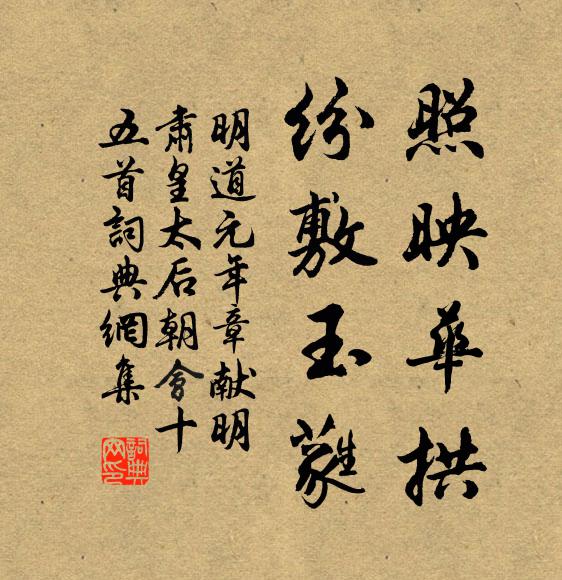 照映華拱
紛敷玉蕤
明道元年章献明
肅皇太后朝會十
五首詞典網集
詞典
网印